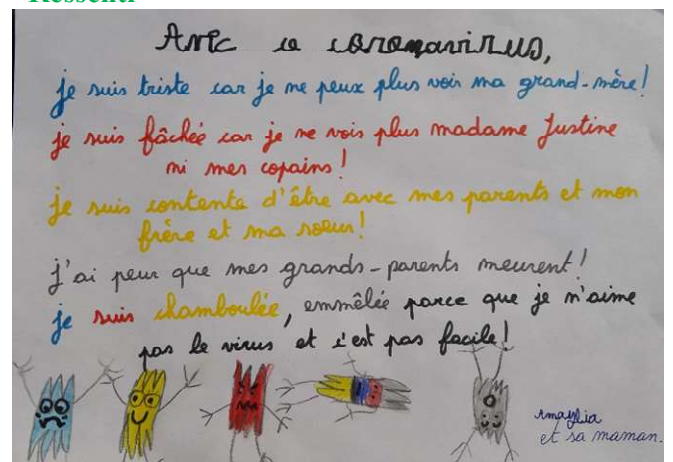 Ressenti
Avec ce coronavirus,
je suis triste car je ne peux plus voir ma grand-mère!
je suis fâchée car je ne vois plus madame Justine
ni mes copains!
je suis contente d'être avec mes parents et mon
frère et ma soeur!
j'ai peur que mes grands-parents meurent!
je suis chamboulée, emmêlée parce que je n'aime
pas le virus et c'est pas facile!
et sa maman.